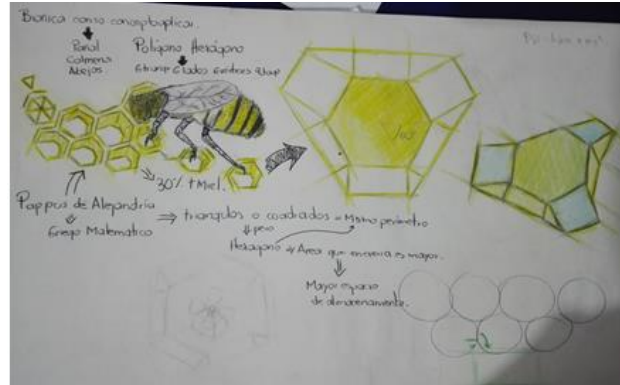 Bionica como concepto aplicar.
Panal
Colmena
Abejas
Polígono Hexágono
30% + Miel.
Pappus de Alejandría
Griego Matematico
⇒ triangulos o cuadrados = Mismo perimetro
pero
Hexagono Area que encierra es mayor.
Mayor espacio
de almacenamiento.